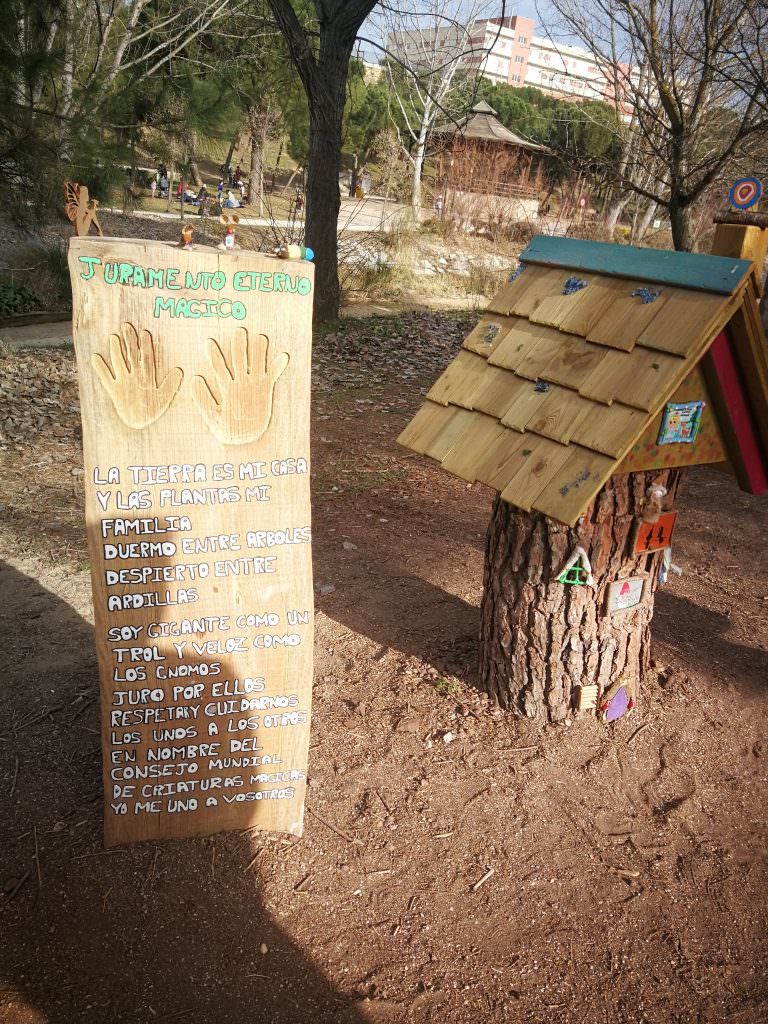 JURAMENTO ETERNO
MAGICO
LA TIERRA ES MI CASA
Y LAS PLANTAS MI
FAMILIA
DUERMO ENTRE ARBOLES
DESPIERTO ENTRE
ARDILLAS
SOY GIGANTE COMO UN
TROL Y VELOZ COMO
LOS GNOMOS
JURO POR ELLOS
RESPETAR Y CUIDARNOS
LOS UNOS A LOS OTROS
EN NOMBRE DEL
CONSEJO MUNDIAL
DE CRIATURAS MAGICAS
YO ME UNO A VOSOTROS